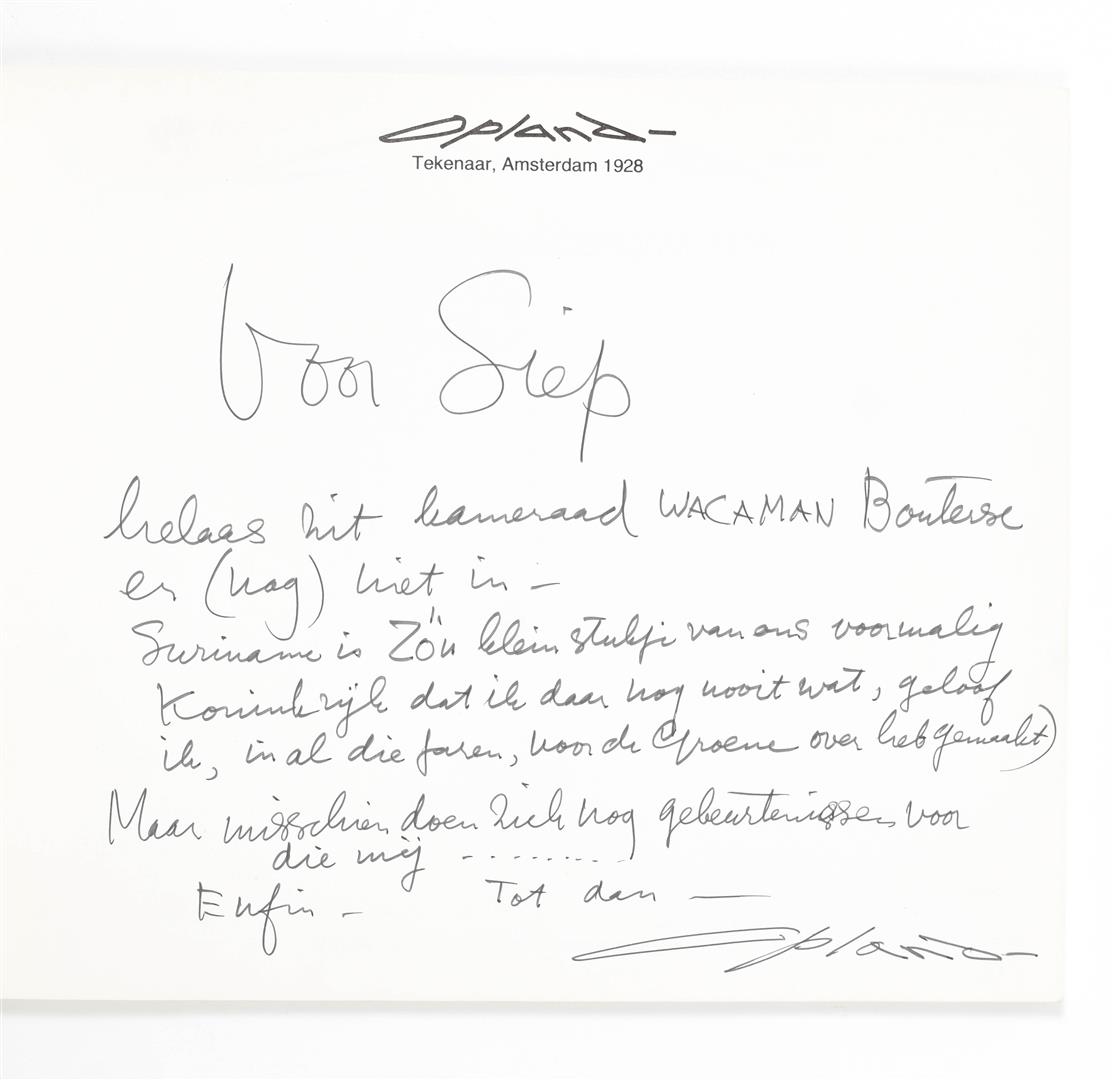 Opland
Tekenaar, Amsterdam 1928
Voor Siep
helaas zit kameraad WACAMAN Bouterse
er (nog) niet in –
Suriname is Zo'n klein stukje van ons voormalig
Koninkrijk dat ik daar nog nooit wat, geloof
ik, in al die jaren, voor de Groene over heb gemaakt)
Maar misschien doen zich nog gebeurtenissen voor
die mij .........
Enfin – Tot dan —
Opland